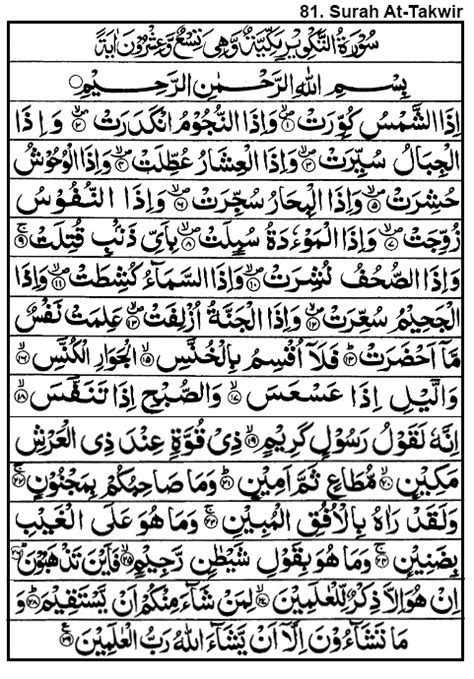 81. Surah At-Takwir
سُوْرَةُ التَّكْوِيْرِ مَكِّيَّةٌ وَّهِىَ تِسْعٌ وَّعِشْرُوْنَ اٰيَةً
بِسْمِ اللهِ الرَّحْمٰنِ الرَّحِيْمِ
اِذَا الشَّمْسُ كُوِّرَتْ ۝۱ وَاِذَا النُّجُوْمُ انْكَدَرَتْ ۝۲ وَاِذَا
الْجِبَالُ سُيِّرَتْ ۝۳ وَاِذَا الْعِشَارُ عُطِّلَتْ ۝۴ وَاِذَا الْوُحُوْشُ
حُشِرَتْ ۝۵ وَاِذَا الْبِحَارُ سُجِّرَتْ ۝۶ وَاِذَا النُّفُوْسُ
زُوِّجَتْ ۝۷ وَاِذَا الْمَوْءٗدَةُ سُئِلَتْ ۝۸ بِاَىِّ ذَنْۢبٍ قُتِلَتْ ۝۹
وَاِذَا الصُّحُفُ نُشِرَتْ ۝۱۰ وَاِذَا السَّمَآءُ كُشِطَتْ ۝۱۱ وَاِذَا
الْجَحِيْمُ سُعِّرَتْ ۝۱۲ وَاِذَا الْجَنَّةُ اُزْلِفَتْ ۝۱۳ عَلِمَتْ نَفْسٌ
مَّآ اَحْضَرَتْ ۝۱۴ فَلَآ اُقْسِمُ بِالْخُنَّسِ ۝۱۵ الْجَوَارِ الْكُنَّسِ ۝۱۶
وَالَّيْلِ اِذَا عَسْعَسَ ۝۱۷ وَالصُّبْحِ اِذَا تَنَفَّسَ ۝۱۸
اِنَّهٗ لَقَوْلُ رَسُوْلٍ كَرِيْمٍ ۝۱۹ ذِىْ قُوَّةٍ عِنْدَ ذِى الْعَرْشِ
مَكِيْنٍ ۝۲۰ مُّطَاعٍ ثَمَّ اَمِيْنٍ ۝۲۱ وَمَا صَاحِبُكُمْ بِمَجْنُوْنٍ ۝۲۲
وَلَقَدْ رَاٰهُ بِالْاُفُقِ الْمُبِيْنِ ۝۲۳ وَمَا هُوَ عَلَى الْغَيْبِ
بِضَنِيْنٍ ۝۲۴ وَمَا هُوَ بِقَوْلِ شَيْطٰنٍ رَّجِيْمٍ ۝۲۵ فَاَيْنَ تَذْهَبُوْنَ ۝۲۶
اِنْ هُوَ اِلَّا ذِكْرٌ لِّلْعٰلَمِيْنَ ۝۲۷ لِمَنْ شَآءَ مِنْكُمْ اَنْ يَّسْتَقِيْمَ ۝۲۸ وَ
مَا تَشَآءُوْنَ اِلَّآ اَنْ يَّشَآءَ اللهُ رَبُّ الْعٰلَمِيْنَ ۝۲۹